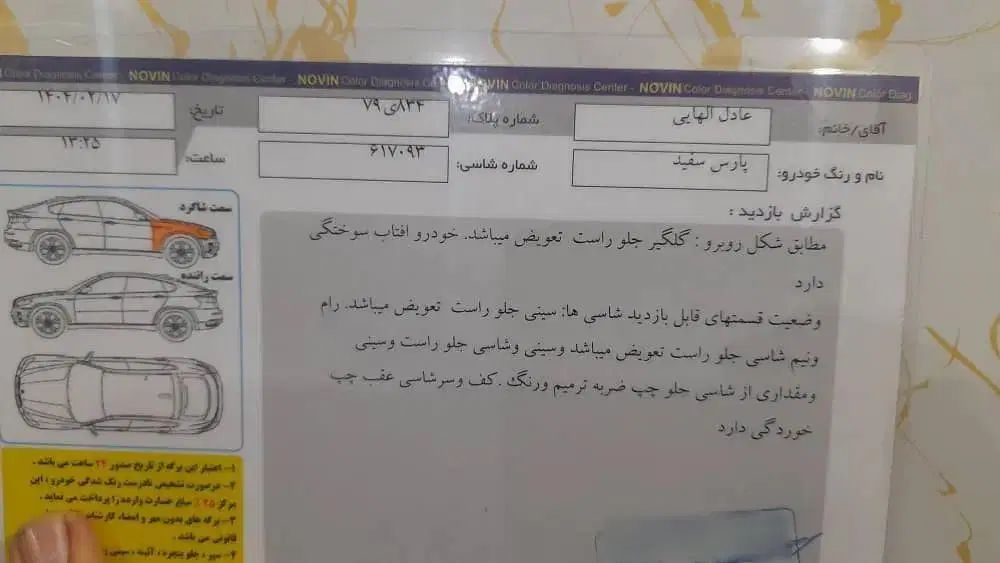 Color Diagnosis Center - NOVIN Color Diagnosis Center - NOVIN Color Diagnosis Center - NOVIN Color Diagnosis Center - NOVIN Color Diagnosis Center - NOVIN Color Diag
آقای/خانم: عادل الهایی شماره پلاک: ۸۳۴ی۷۹ تاریخ: ۱۴۰۴/۰۲/۱۷
نام و رنگ خودرو: پارس سفید شماره شاسی: ۶۱۷۰۹۳ ساعت: ۱۳:۲۵
گزارش بازدید :
مطابق شکل روبرو : گلگیر جلو راست تعویض میباشد. خودرو افتاب سوختگی
دارد
وضعیت قسمتهای قابل بازدید شاسی ها: سینی جلو راست تعویض میباشد. رام
ونیم شاسی جلو راست تعویض میباشد وسینی وشاسی جلو راست وسینی
ومقداری از شاسی جلو چپ ضربه ترمیم ورنگ .کف وسرشاسی عقب چپ
خوردگی دارد
سمت شاگرد
سمت راننده
۱- اعتبار این برگه از تاریخ صدور ۲۴ ساعت می باشد .
۲- درصورت تشخیص نادرست رنگ شدگی خودرو ، این
مرکز ۲۵٪ مبلغ خسارت وارده را پرداخت می نماید .
۳- برگه های بدون مهر و امضاء کارشناس
قانونی می باشد .
۴- سپر ، جلو پنجره ، آئینه ، سینی